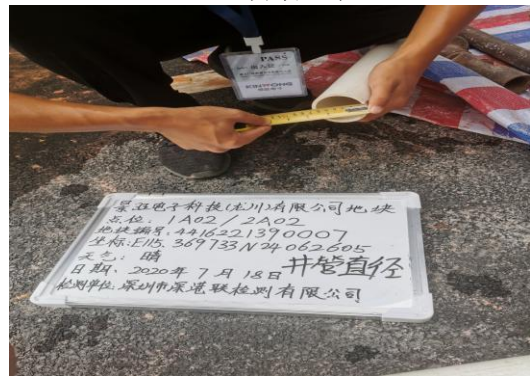 PASS
景旺电子科技(龙川)有限公司地块
点位: 1A02/2A02
地块编号: 4416221390007
坐标:E115.369733 N24.062605
天气: 晴
日期: 2020年7月18日 井管直径
检测单位: 深圳市深港联检测有限公司